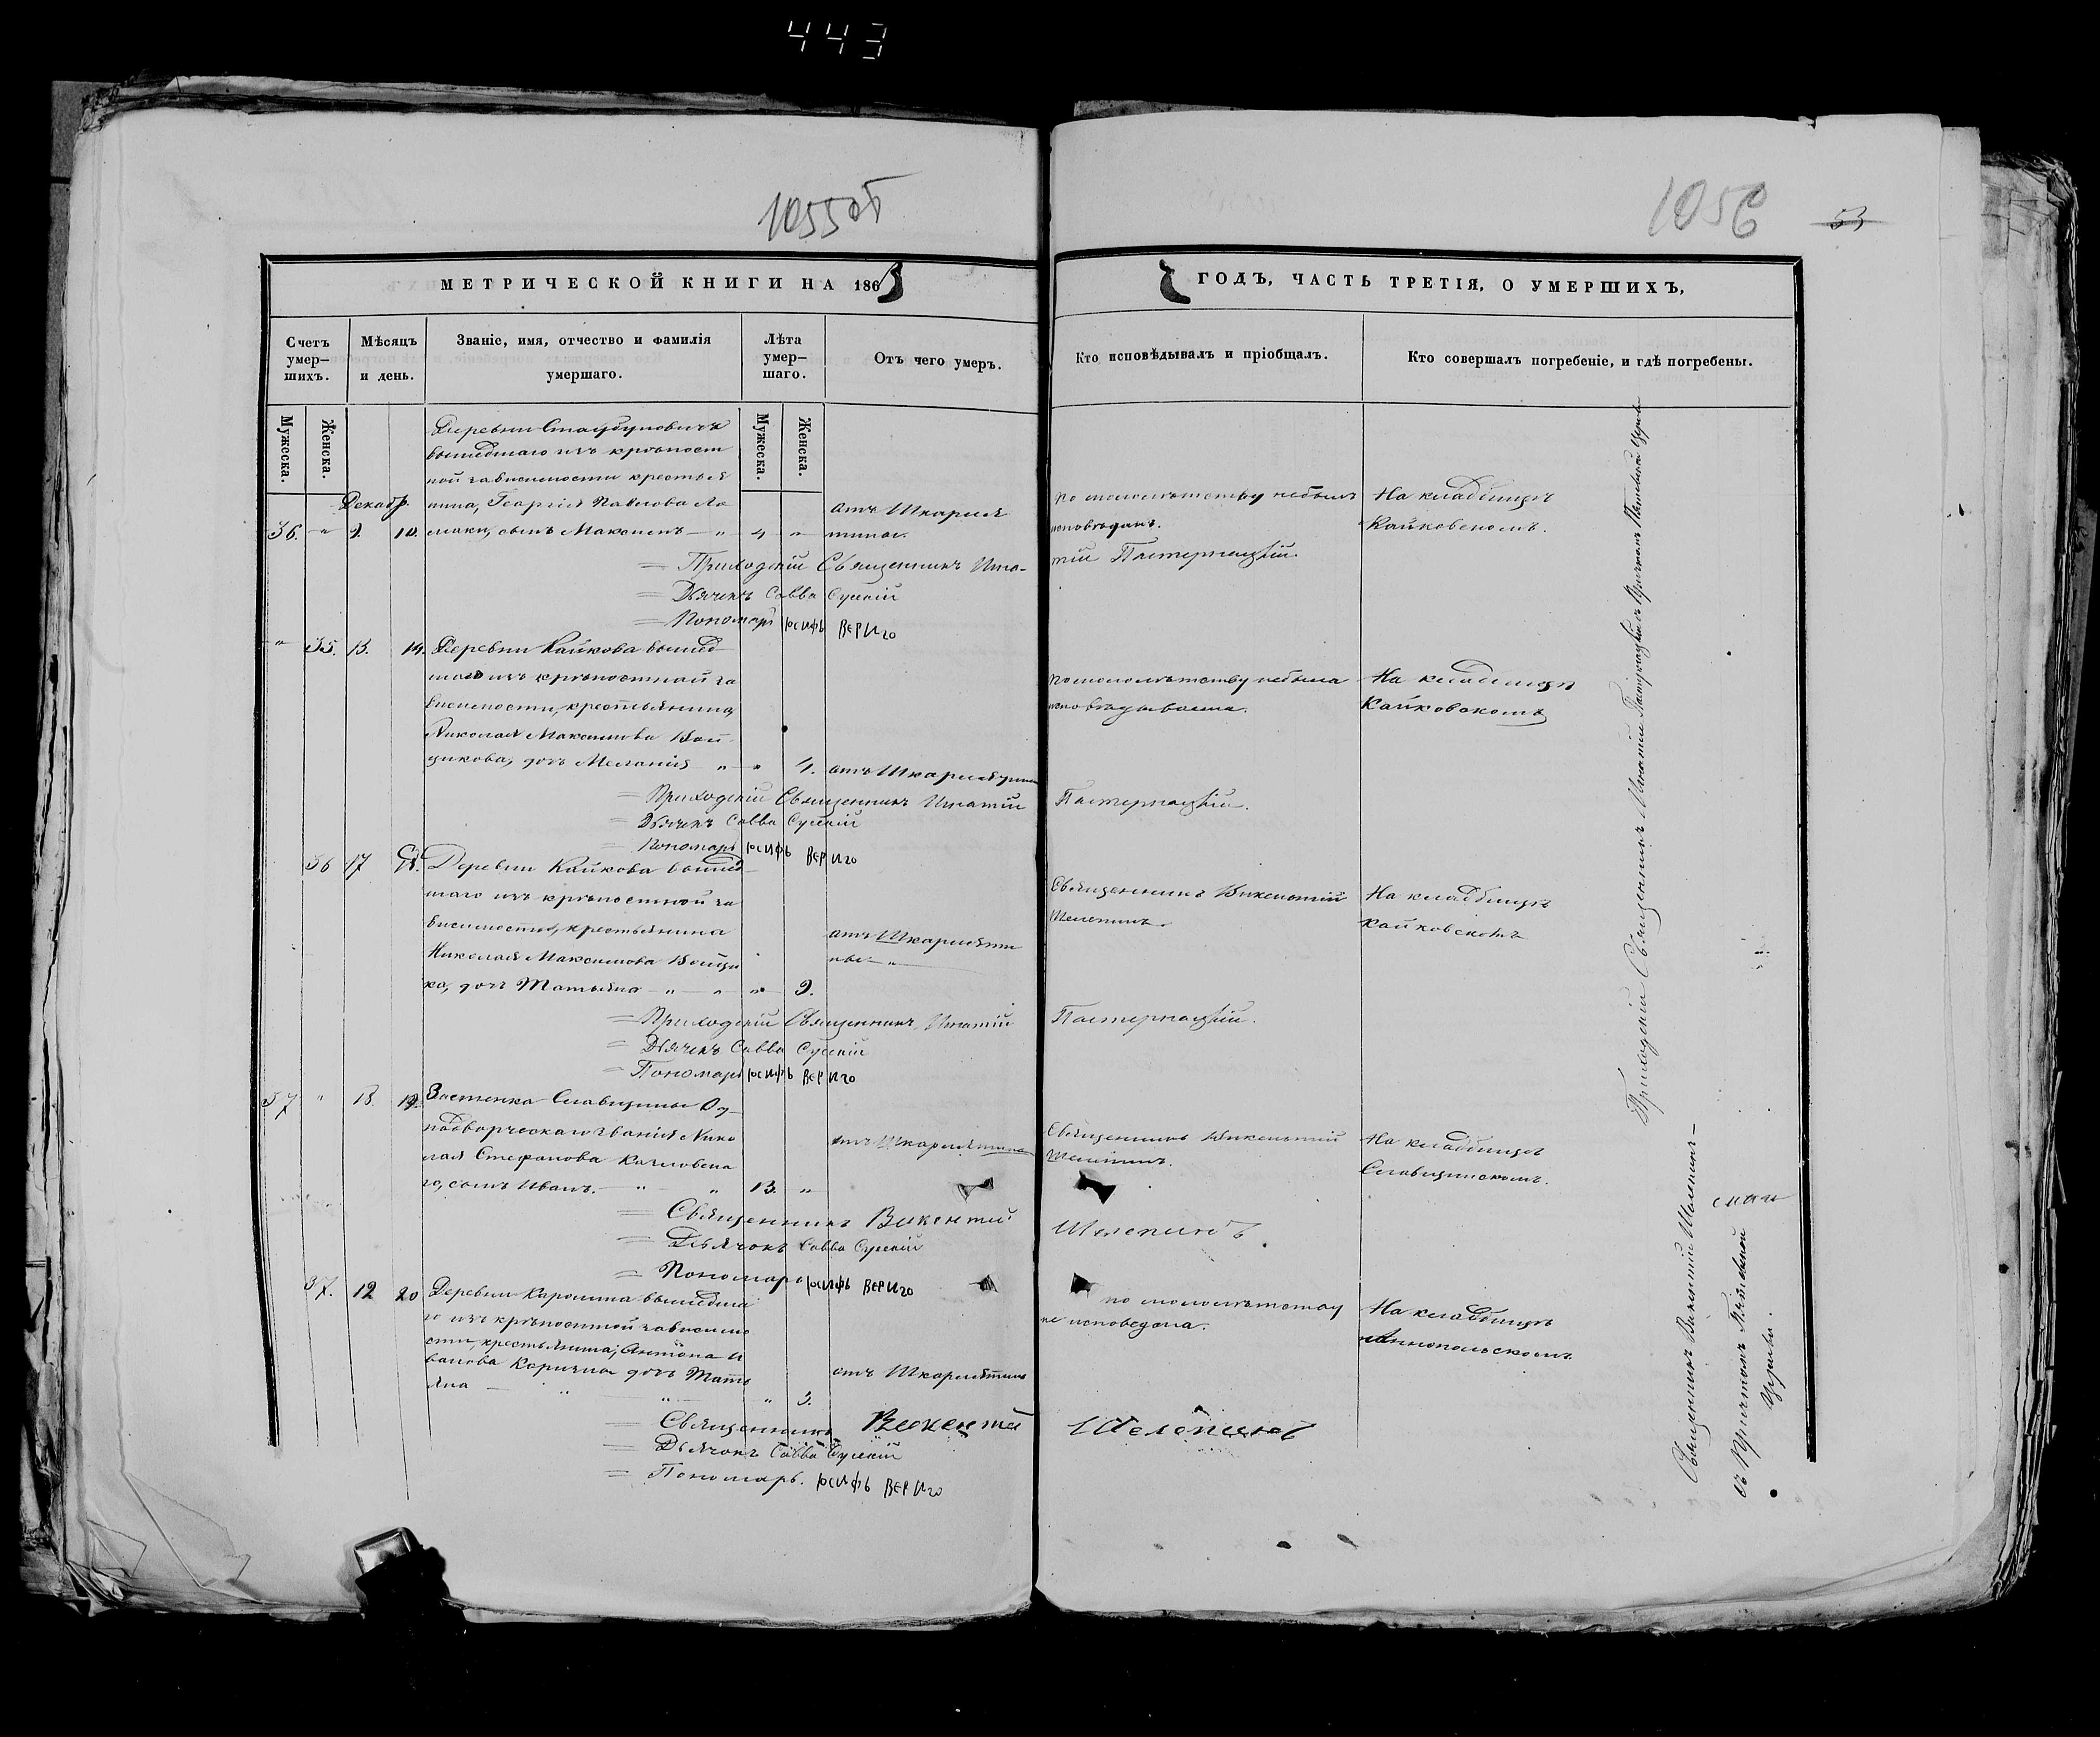 443
1055об
1056
53
МЕТРИЧЕСКОЙ КНИГИ НА 1863
ГОДЪ, ЧАСТЬ ТРЕТІЯ, О УМЕРШИХЪ,
Счетъ умер-шихъ.
Мѣсяцъ и день.
Званіе, имя, отчество и фамилія умершаго.
Лѣта умер-шаго.
Отъ чего умеръ.
Кто исповѣдывалъ и пріобщалъ.
Кто совершалъ погребеніе, и гдѣ погребены.
Мужеска.
Женска.
Мужеска.
Женска.
Деревни
вышедшаго изъ крѣпост
ной зависимости крестья
Декабр. нина, Георгія Павлова Ло
36. " 9. 10. маки, сынъ Максимъ — " 4 "
отъ Шкарля
тины.
По малолѣтству небылъ
исповѣданъ.
На кладбищѣ
Кайковскомъ.
= Приходскій Священникъ Игна-
тій Пастернацкій.
= Дьячекъ Савва Сущкій
= Пономарь Іосифъ Вериго
" 35. 13. 14. Деревни Кайкова вышед
шаго изъ крѣпостной за
висимости, крестьянина,
Николая Максимова Вой
цикова, дочь Меланія " " 4. отъ Шкарлятины
По малолѣтству небыла
исповѣдывана.
На кладбищѣ
Кайковскомъ
= Приходскій Священникъ Игнатій
Пастернацкій.
= Дьячекъ Савва Сущкій
= Пономарь Іосифъ Вериго
36 17 18. Деревни Кайкова вышед
шаго изъ крѣпостной за
висимости, крестьянина
Николая Максимова Войци
ка, дочь Татьяна — " " " 9.
отъ Шкарляти
ны — "
Священникъ Викентій
Шелепинъ.
На кладбищѣ
Кайковскомъ
= Приходскій Священникъ Игнатій
Пастернацкій.
= Дьячекъ Савва Сущкій
= Пономарь Іосифъ Вериго
37 " 18. 19. Застенка Славищины Од
нодворческаго званія Нико
лая Стефанова
го, сынъ Иванъ. — " " 13. "
отъ Шкарлятины
Священникъ Викентій
Шелепинъ.
На кладбищѣ
Славищинскомъ.
= Священникъ Викентій
Шелепинъ
= Дьячокъ Савва Сущкій
= Пономарь Іосифъ Вериго
37. 12 20 Деревни Каролина вышедша
го изъ крѣпостной зависимо
сти, крестьянина, Антона И
ванова дочь Тать
яна — " " " 3.
отъ Шкарлятины
по малолѣтству
не исповедана.
На кладбищѣ
Аннопольскомъ.
= Священникъ Викентій
Шелепинъ
= Дьячокъ Савва Сущкій
= Пономарь. Іосифъ Вериго
Приходскій Священникъ Игнатій Пастернацкій съ Причтомъ
Священникъ Викентій Шелепинъ —
съ Причтомъ
Церкви.